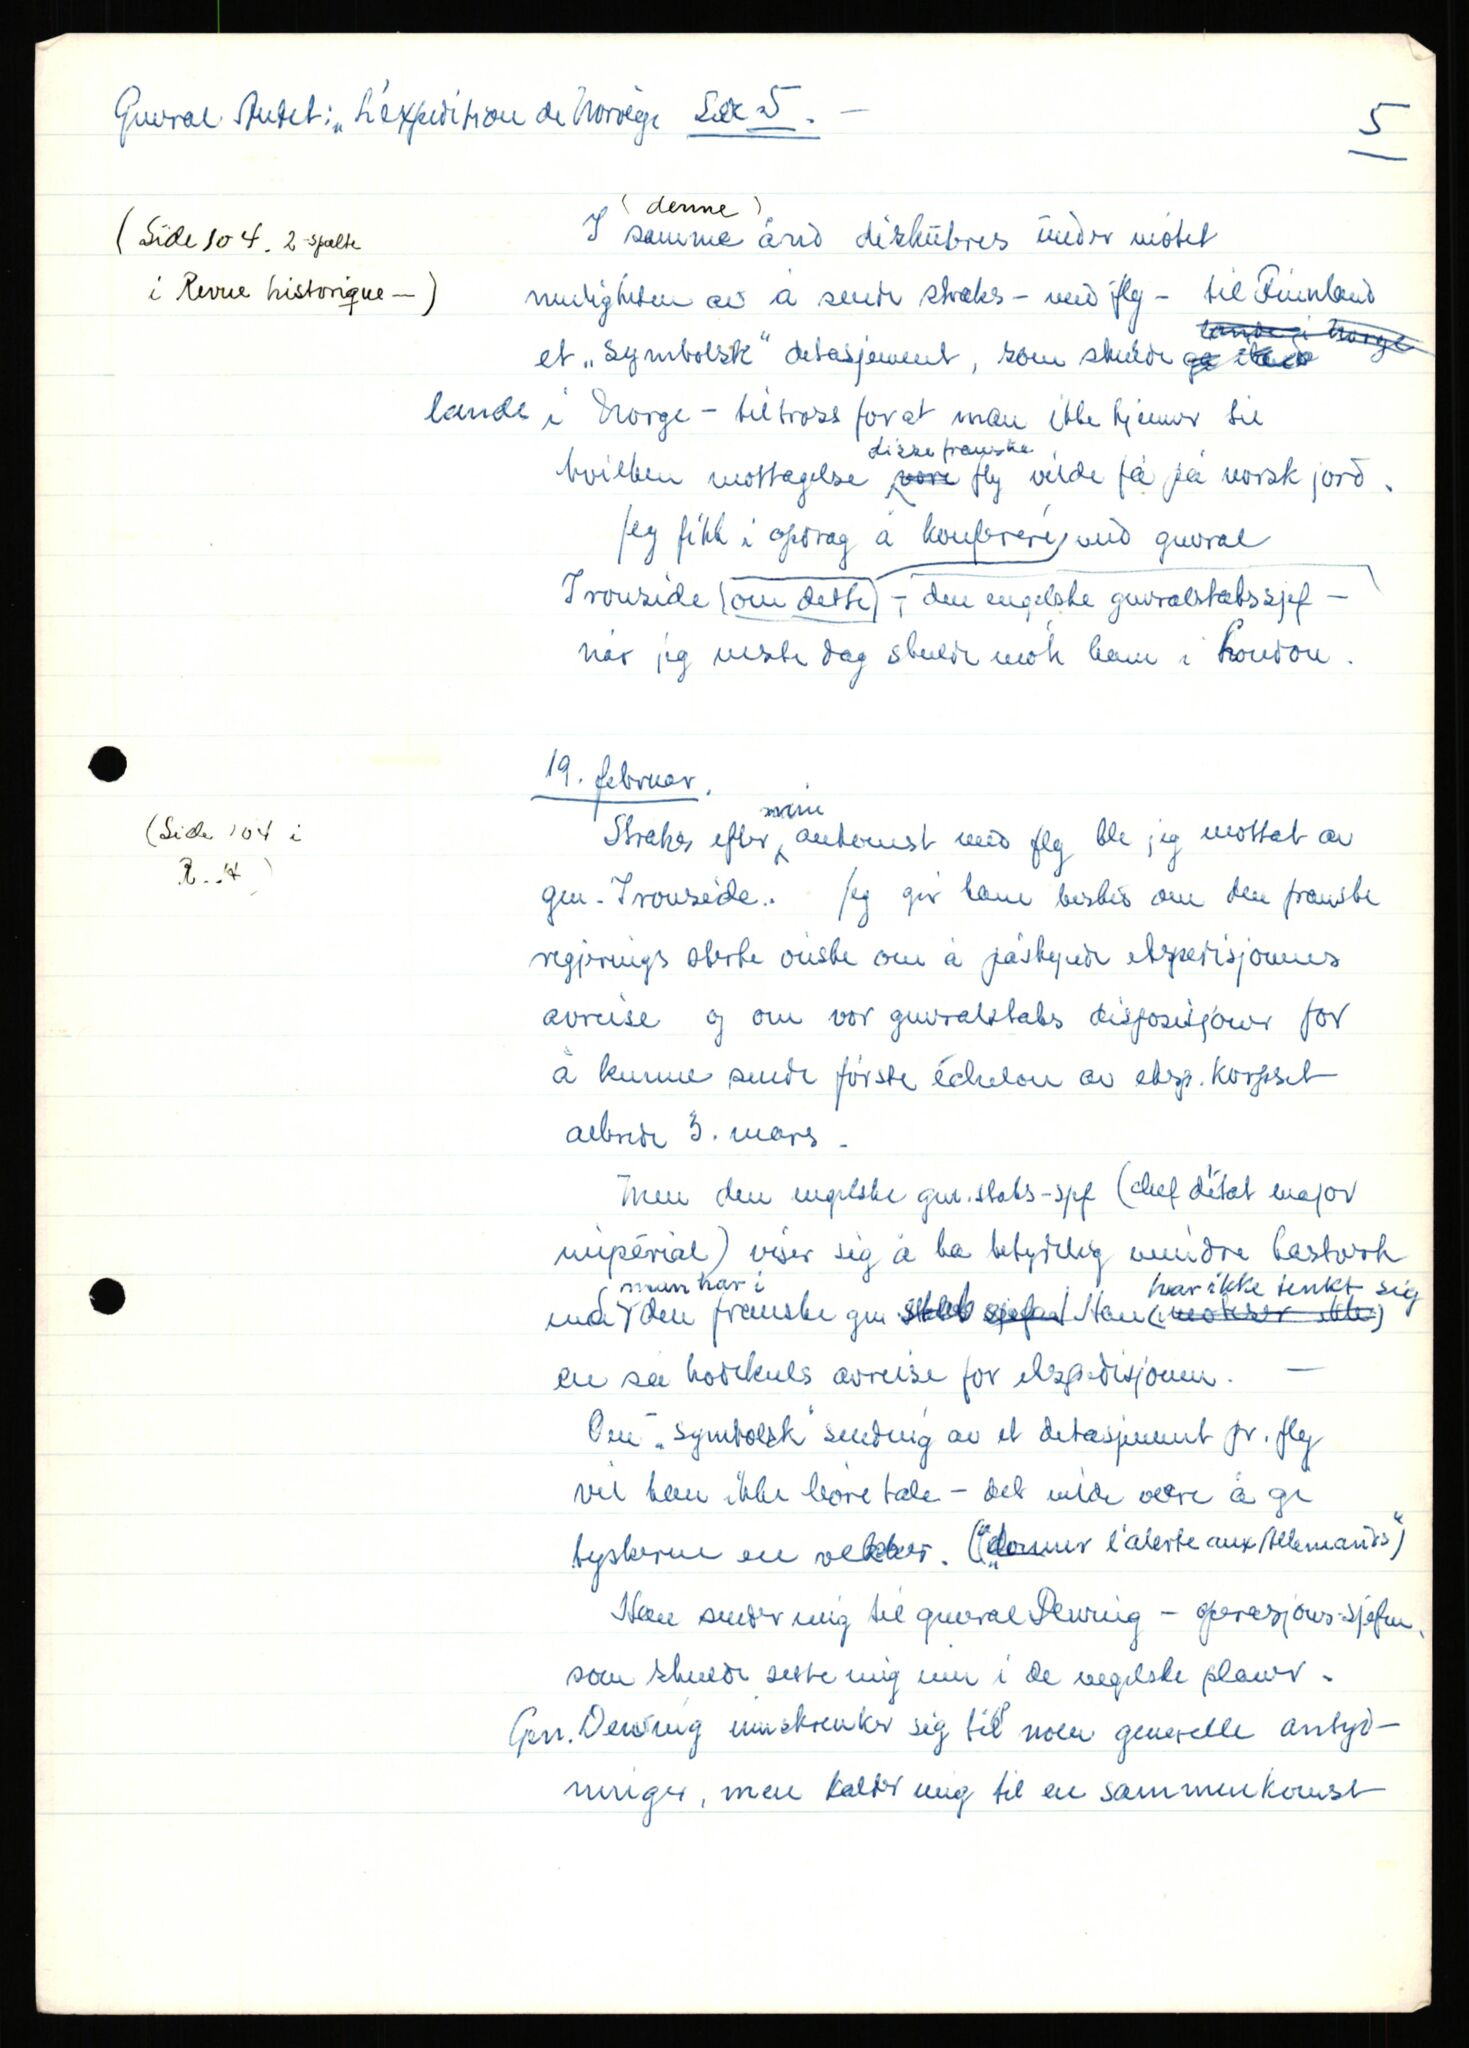 General Audet: „L'expedition de Norvège Side 5. —
5
(Side 104. 2-spalte
i Revue historique —)
(denne)
I samme ånd diskuteres under møtet
muligheten av å sende straks – med fly – til Finnland
et „symbolsk" detasjement, som skulde
lande i Norge
lande i Norge – tiltross for at man ikke kjenner til
disse franske
hvilken mottagelse våre fly vilde få på norsk jord.
Jeg fikk i opdrag å konferere med general
Ironside (om dette) – den engelske generalstabssjef –
når jeg neste dag skulde møte ham i London.
19. februar.
(Side 104 i
R..4)
min
Straks efter ankomst med fly ble jeg mottat av
gen. Ironside. Jeg gir ham beskjed om den franske
regjerings sterke ønske om å påskynde ekspedisjonens
avreise og om vor generalstabs disposisjoner for
å kunne sende første échelon av eksp. korpset
allerede 3. mars.
Men den engelske gen.stabs-sjef (chef d'état major
impérial) viser sig å ha betydelig mindre hastverk
man har i
har ikke tenkt sig
enn den franske gen stab sjefen Han (ikke)
en så hodekuls avreise for ekspedisjonen. —
Om „symbolsk" sending av et detasjement pr. fly
vil han ikke høre tale – det vilde være å gi
tyskerne en vekker. („donner l'alerte aux Allemands")
Han sender mig til general Dewing – operasjons-sjefen,
som skulde sette mig inn i de engelske planer.
Gen. Dewing innskrenker sig til noen generelle antyd-
ninger, men kaller mig til en sammenkomst